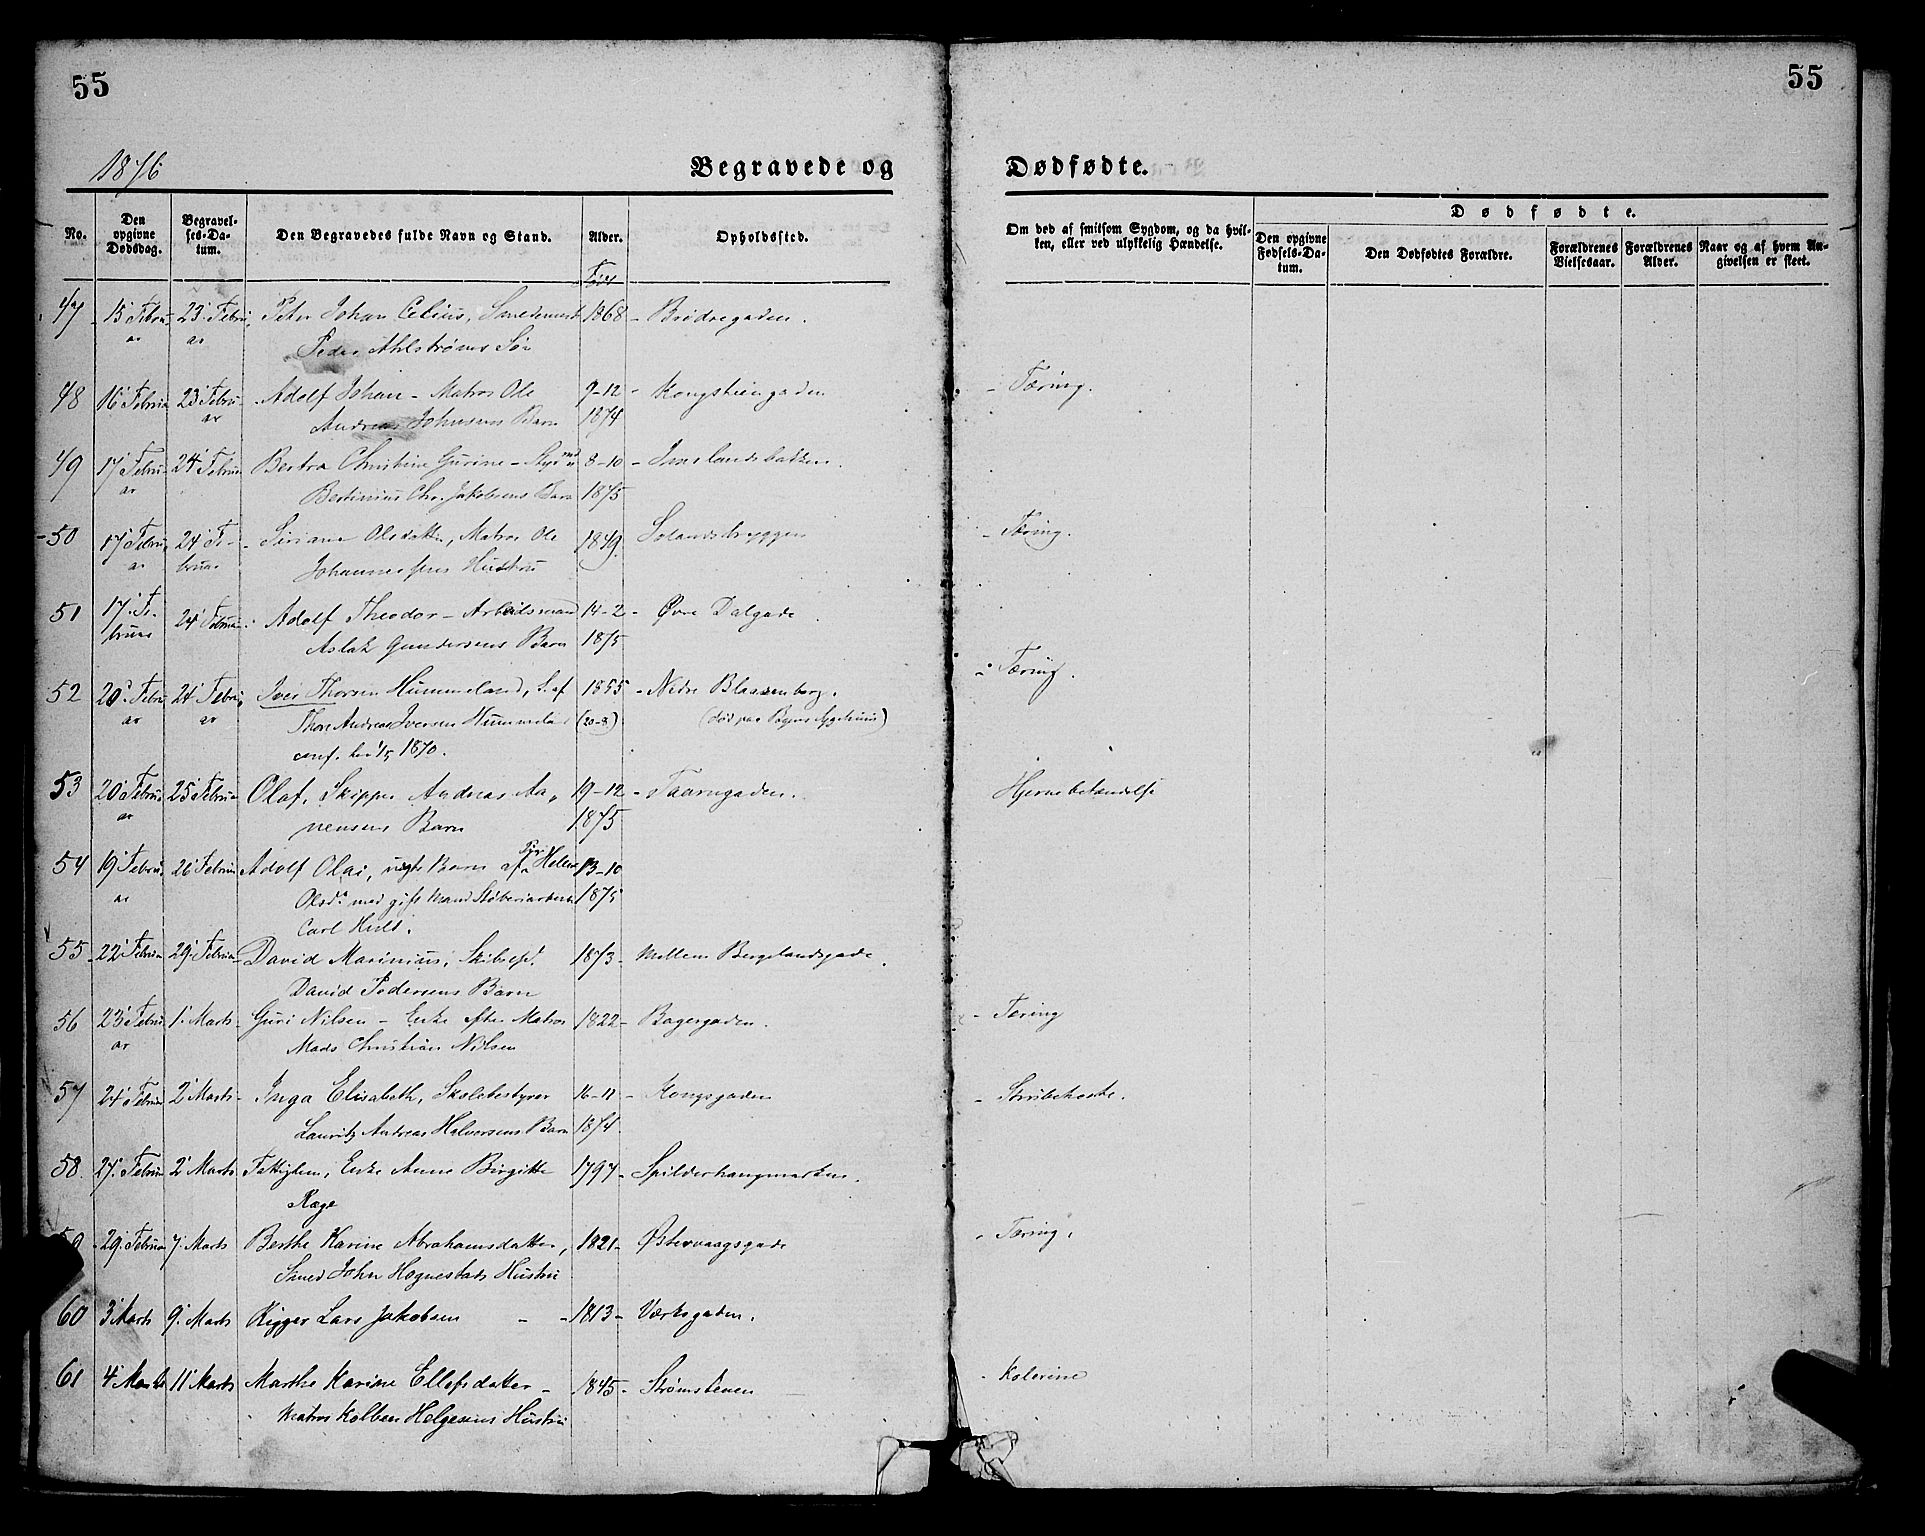 55
55
1876
Begravede og
Dødfødte.
No.
Den opgivne Dødsdag.
Begravelses-Datum.
Den Begravedes fulde Navn og Stand.
Alder.
Opholdssted.
Om død af smitsom Sygdom, og da hvilken, eller ved ulykkelig Hændelse.
Dødfødte.
Den opgivne Fødsels-Datum.
Den Dødfødtes Forældre.
Forældrenes Vielsesaar.
Forældrenes Alder.
Naar og af hvem Angivelsen er skeet.
47 15 Febru 23 Febru Peter Johan Celius, 1868 - Brødregaden.
ar ar Peder Ahlstrøms Søn
48 16 Februa 23 Febru Adolf Johan - Matros Ole 9-12 - Kongsteengaden - Tæring.
ar Andreas Johnsens Barn 1874
49 17 Febru 24 Februa Christine Gurine - 8-10
ar Chr. Jakobsens Barn 1875
50 17 Febru 24 Fe- Olsdatter, Matros Ole 1849 Solandsbryggen - Tæring.
ar bruar Hustru
51 17 Fe- 24 Februar Adolf Theodor - Arbeidsmand 14-2 - Øvre Dalgade
bruar Aslak Gundersens Barn 1875
52 20 Febru 24 Febru Iver Thorsen Hummeland, S. af 1855 - Nedre Blaasenborg. - Tæring.
ar ar Thore Andreas Iversen Hummeland (20-8) (død paa Byens Sygehuus)
conf. 1870.
53 20 Febru 25 Februa Olaf, Skipper Andreas Aa- 19-12 - Taarngaden. Hjernebetændelse
ar nensens Barn 1875
54 19 Febru 26 Februa Adolf Olai, uægte Barn af Pige Helene 13-10
ar Olsd. med gift Mand Støberiarbeider 1875
Carl
55 22 Februa 29 Februa David Marinius, 1873 - Mellem Bergelandsgade
David Pedersens Barn
56 23 Febru 1 Marts Guri Nilsen - Enke efter Matros 1822 - Bagergaden. - Tæring
ar Mads Christian Nilsen
57 24 Februa 2 Marts - Inga Elisabeth, Skolebestyrer 16-11 - Kongsgaden - Strubehoste.
Lauritz Andreas Halversens Barn 1874
58 27 Februa 2 Marts Fattiglem, Enke Anne Birgitte 1797 - Spilderhaugmarken.
Rage
59 29 Februa 7 Marts Berthe Karine Abrahamsdatter, 1821 - Østervaagsgade - Tæring.
Smed John Hognestads Hustru
60 3 Marts 9 Marts Rigger Lars Jakobsen - - 1813 - Værksgaden.
61 4 Marts 11 Marts Marthe Karine Ellefsdatter - 1845 - Strømstenen - Kolerine
Matros Kolbeen Helgesens Hustru